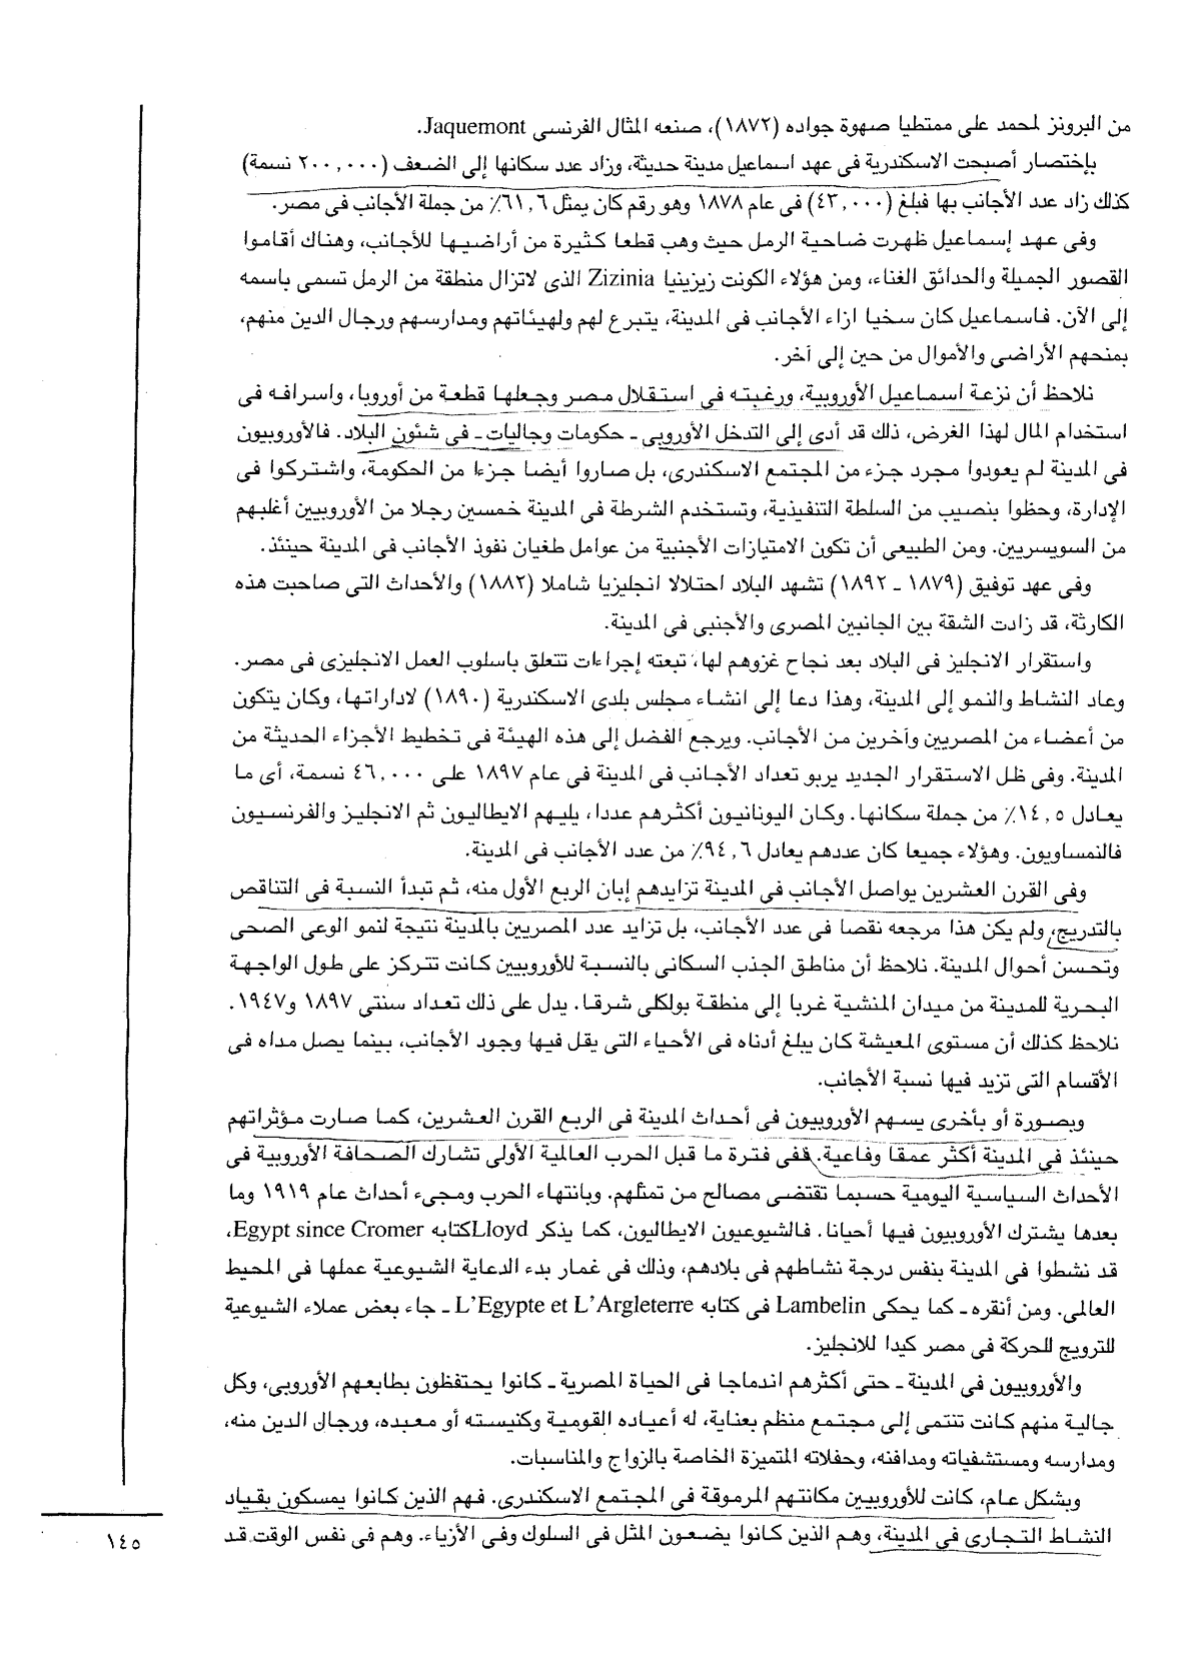 من البرونز لمحمد على ممتطيا صهوة جواده (١٨٧٢)، صنعه المثال الفرنسى Jaquemont.
بإختصار أصبحت الاسكندرية فى عهد اسماعيل مدينة حديثة، وزاد عدد سكانها إلى الضعف (٢٠٠,٠٠٠ نسمة)
كذلك زاد عدد الأجانب بها فبلغ (٤٣,٠٠٠) فى عام ١٨٧٨ وهو رقم كان يمثل ٦١,٦٪ من جملة الأجانب فى مصر.
وفى عهد إسماعيل ظهرت ضاحية الرمل حيث وهب قطعا كثيرة من أراضيها للأجانب، وهناك أقاموا
القصور الجميلة والحدائق الغناء، ومن هؤلاء الكونت زيزينيا Zizinia الذى لاتزال منطقة من الرمل تسمى باسمه
إلى الآن. فاسماعيل كان سخيا ازاء الأجانب فى المدينة، يتبرع لهم ولهيئاتهم ومدارسهم ورجال الدين منهم،
بمنحهم الأراضى والأموال من حين إلى آخر.
نلاحظ أن نزعة اسماعيل الأوروبية، ورغبته فى استقلال مصر وجعلها قطعة من أوروبا، واسرافه فى
استخدام المال لهذا الغرض، ذلك قد أدى إلى التدخل الأوروبى ـ حكومات وجاليات ـ فى شئون البلاد. فالأوروبيون
فى المدينة لم يعودوا مجرد جزء من المجتمع الاسكندرى، بل صاروا أيضا جزءا من الحكومة، واشتركوا فى
الإدارة، وحظوا بنصيب من السلطة التنفيذية، وتستخدم الشرطة فى المدينة خمسين رجلا من الأوروبيين أغلبهم
من السويسريين. ومن الطبيعى أن تكون الامتيازات الأجنبية من عوامل طغيان نفوذ الأجانب فى المدينة حينئذ.
وفى عهد توفيق (١٨٧٩ ـ ١٨٩٢) تشهد البلاد احتلالا انجليزيا شاملا (١٨٨٢) والأحداث التى صاحبت هذه
الكارثة، قد زادت الشقة بين الجانبين المصرى والأجنبى فى المدينة.
واستقرار الانجليز فى البلاد بعد نجاح غزوهم لها، تبعته إجراءات تتعلق باسلوب العمل الانجليزى فى مصر.
وعاد النشاط والنمو إلى المدينة، وهذا دعا إلى انشاء مجلس بلدى الاسكندرية (١٨٩٠) لاداراتها، وكان يتكون
من أعضاء من المصريين وآخرين من الأجانب. ويرجع الفضل إلى هذه الهيئة فى تخطيط الأجزاء الحديثة من
المدينة. وفى ظل الاستقرار الجديد يربو تعداد الأجانب فى المدينة فى عام ١٨٩٧ على ٤٦,٠٠٠ نسمة، أى ما
يعادل ١٤,٥٪ من جملة سكانها. وكان اليونانيون أكثرهم عددا، يليهم الايطاليون ثم الانجليز والفرنسيون
فالنمساويون. وهؤلاء جميعا كان عددهم يعادل ٩٤,٦٪ من عدد الأجانب فى المدينة.
وفى القرن العشرين يواصل الأجانب فى المدينة تزايدهم إبان الربع الأول منه، ثم تبدأ النسبة فى التناقص
بالتدريج، ولم يكن هذا مرجعه نقصا فى عدد الأجانب، بل تزايد عدد المصريين بالمدينة نتيجة لنمو الوعى الصحى
وتحسن أحوال المدينة. نلاحظ أن مناطق الجذب السكانى بالنسبة للأوروبيين كانت تتركز على طول الواجهة
البحرية للمدينة من ميدان المنشية غربا إلى منطقة بولكلى شرقا. يدل على ذلك تعداد سنتى ١٨٩٧ و١٩٤٧.
نلاحظ كذلك أن مستوى المعيشة كان يبلغ أدناه فى الأحياء التى يقل فيها وجود الأجانب، بينما يصل مداه فى
الأقسام التى تزيد فيها نسبة الأجانب.
وبصورة أو بأخرى يسهم الأوروبيون فى أحداث المدينة فى الربع القرن العشرين، كما صارت مؤثراتهم
حينئذ فى المدينة أكثر عمقا وفاعية. ففى فترة ما قبل الحرب العالمية الأولى تشارك الصحافة الأوروبية فى
الأحداث السياسية اليومية حسبما تقتضى مصالح من تمثلهم. وبانتهاء الحرب ومجىء أحداث عام ١٩١٩ وما
بعدها يشترك الأوروبيون فيها أحيانا. فالشيوعيون الايطاليون، كما يذكر Lloydكتابه Egypt since Cromer،
قد نشطوا فى المدينة بنفس درجة نشاطهم فى بلادهم، وذلك فى غمار بدء الدعاية الشيوعية عملها فى المحيط
العالمى. ومن أنقره ـ كما يحكى Lambelin فى كتابه L'Egypte et L'Argleterre ـ جاء بعض عملاء الشيوعية
للترويج للحركة فى مصر كيدا للانجليز.
والأوروبيون فى المدينة ـ حتى أكثرهم اندماجا فى الحياة المصرية ـ كانوا يحتفظون بطابعهم الأوروبى، وكل
جالية منهم كانت تنتمى إلى مجتمع منظم بعناية، له أعياده القومية وكنيسته أو معبده، ورجال الدين منه،
ومدارسه ومستشفياته ومدافنه، وحفلاته المتميزة الخاصة بالزواج والمناسبات.
وبشكل عام، كانت للأوروبيين مكانتهم المرموقة فى المجتمع الاسكندرى. فهم الذين كانوا يمسكون بقياد
النشاط التجارى فى المدينة، وهم الذين كانوا يضعون المثل فى السلوك وفى الأزياء. وهم فى نفس الوقت قد
١٤٥